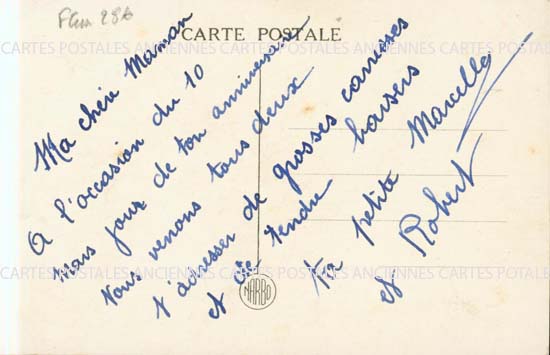 CARTE POSTALE
Ma chère Maman
A l'occasion du 10
mars jour de ton anniversaire
nous venons tous deux
t'adresser de grosses caresses
et de tendre baisers
ta petite Marcelle
et Robert
NARBO
CARTES POSTALES ANCIENNES CARTES POSTALES ANCIENNES CARTES POSTALES
CARTES POSTALES ANCIENNES CARTES POSTALES ANCIENNES CARTES POSTALES